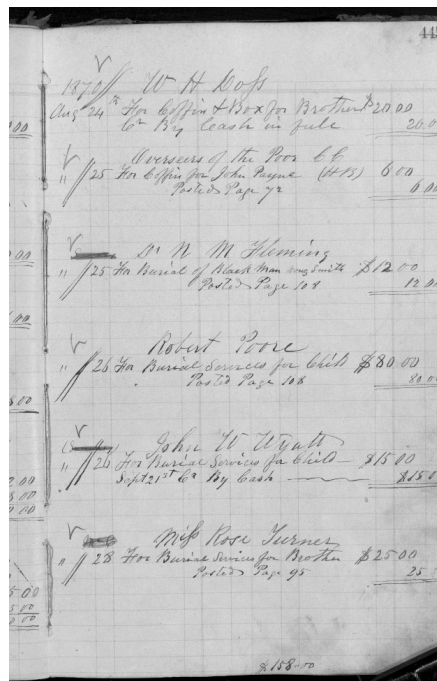 44
1870 W H Doss
Aug 24th For Coffin & Box for Brother $20 00
Cr By Cash in full 20.0
Overseers of the Poor CC
" 25 For Coffin for John Payne 6 00
Posted Page 72 6 00
Dr N M Fleming
" 25 For Burial of Black Man Smith $12 00
Posted Page 108 12 00
Robert Poore
" 26 For Burial Services for Child $80 00
Posted Page 108 80 00
John W Wyatt
" 26 For Burial Services for Child $15 00
Sept 21st Cr By Cash $15 0
Miss Rose Turner
" 28 For Burial Services for Brother $25 00
Posted Page 95 25
$158.00